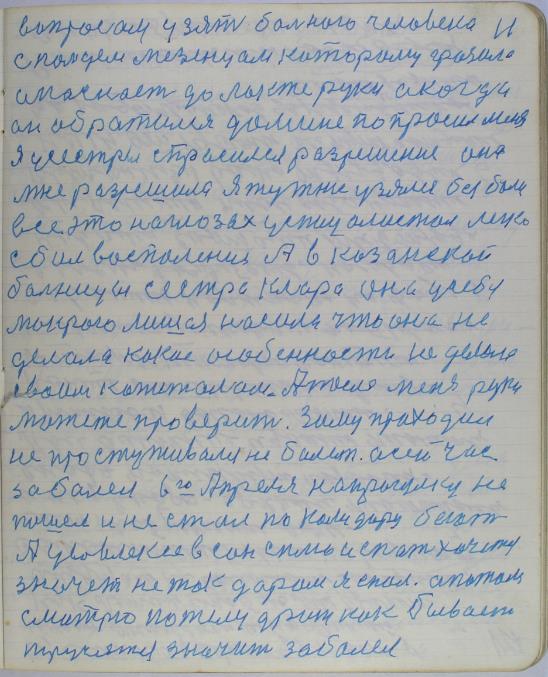 вопросам узят болного человека 11
с полцем мезенцам которому грозила
апасност до локте руки а когда
он обратился до мне попросил меня
я у сестры спросился разрешение она
мне разрешила я тут же узялся без боли
все это на глозах у специалистов легко
сбил воспаления А в Казанской
болницы сестра Клара она у себя
мокрого лишая носила что она не
делала какие особенности не делала
своим капиталом. А после меня руки
можете проверит. Зиму праходил
не простуживался не болел. а сей час
заболел 6го Апреля на прогулку не
пошел и не стал по калидору бегат
А уловлекся в сон сплю и спат хочется
значет не так даром я спал. а потом
смотрю по телу дрит как бывает
трусется значит заболел